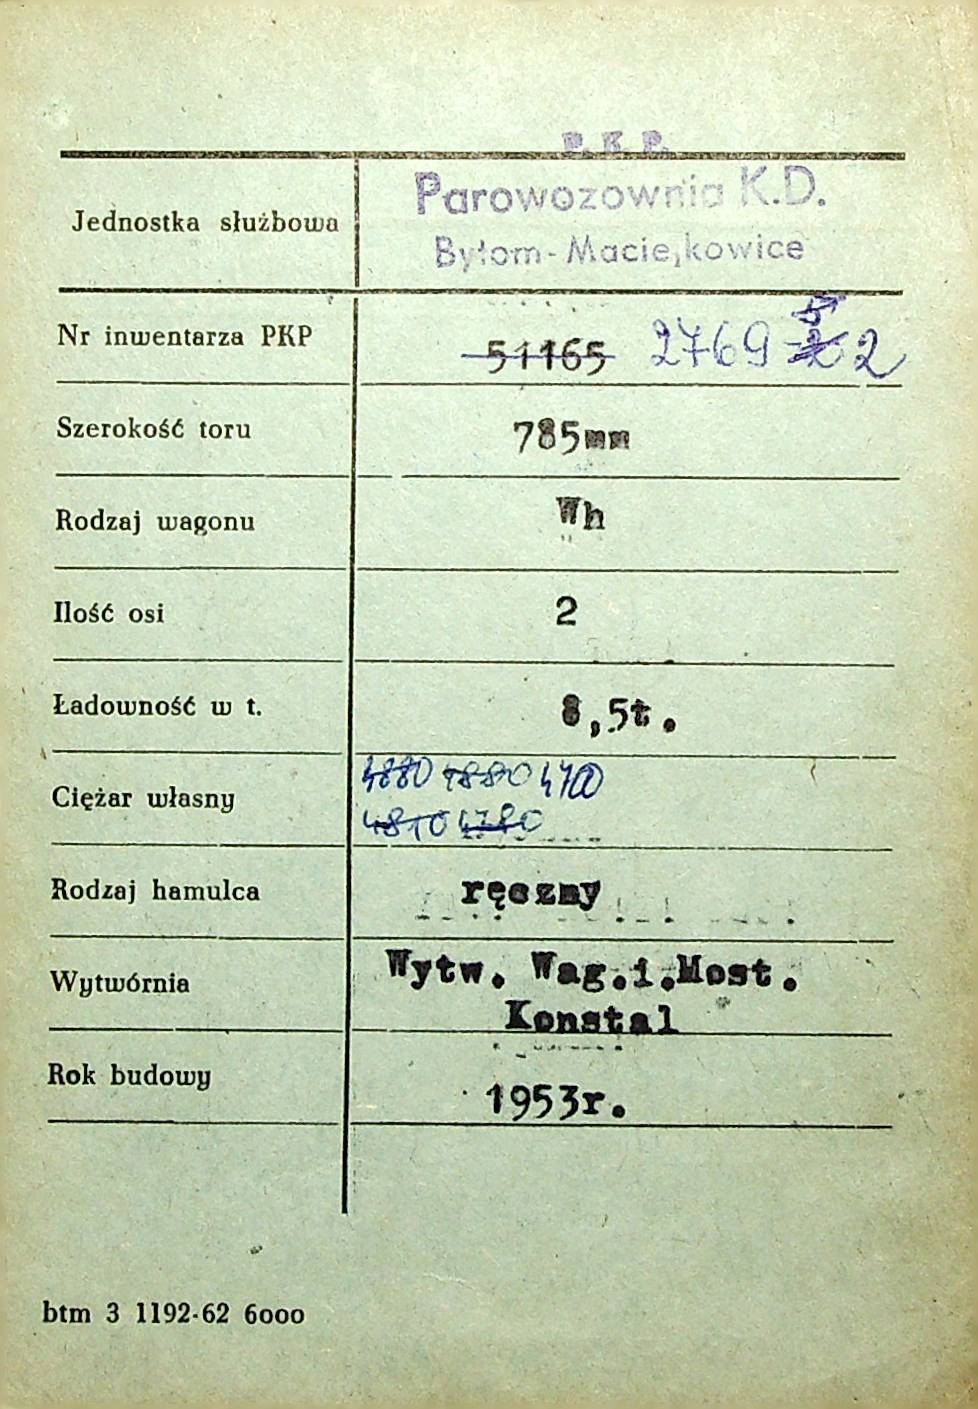 P. K. P.
Parowozownia K.D.
Jednostka służbowa
Bytom-Maciejkowice
Nr inwentarza PKP 51165 2769 2
Szerokość toru 785mm
Rodzaj wagonu Wh
Ilość osi 2
Ładowność w t. 8,5t.
4880 4880 4700
Ciężar własny
4810 4780
Rodzaj hamulca ręczny
Wytwórnia Wytw. Wag.i.Most.
Konstal
Rok budowy 1953r.
btm 3 1192-62 6000